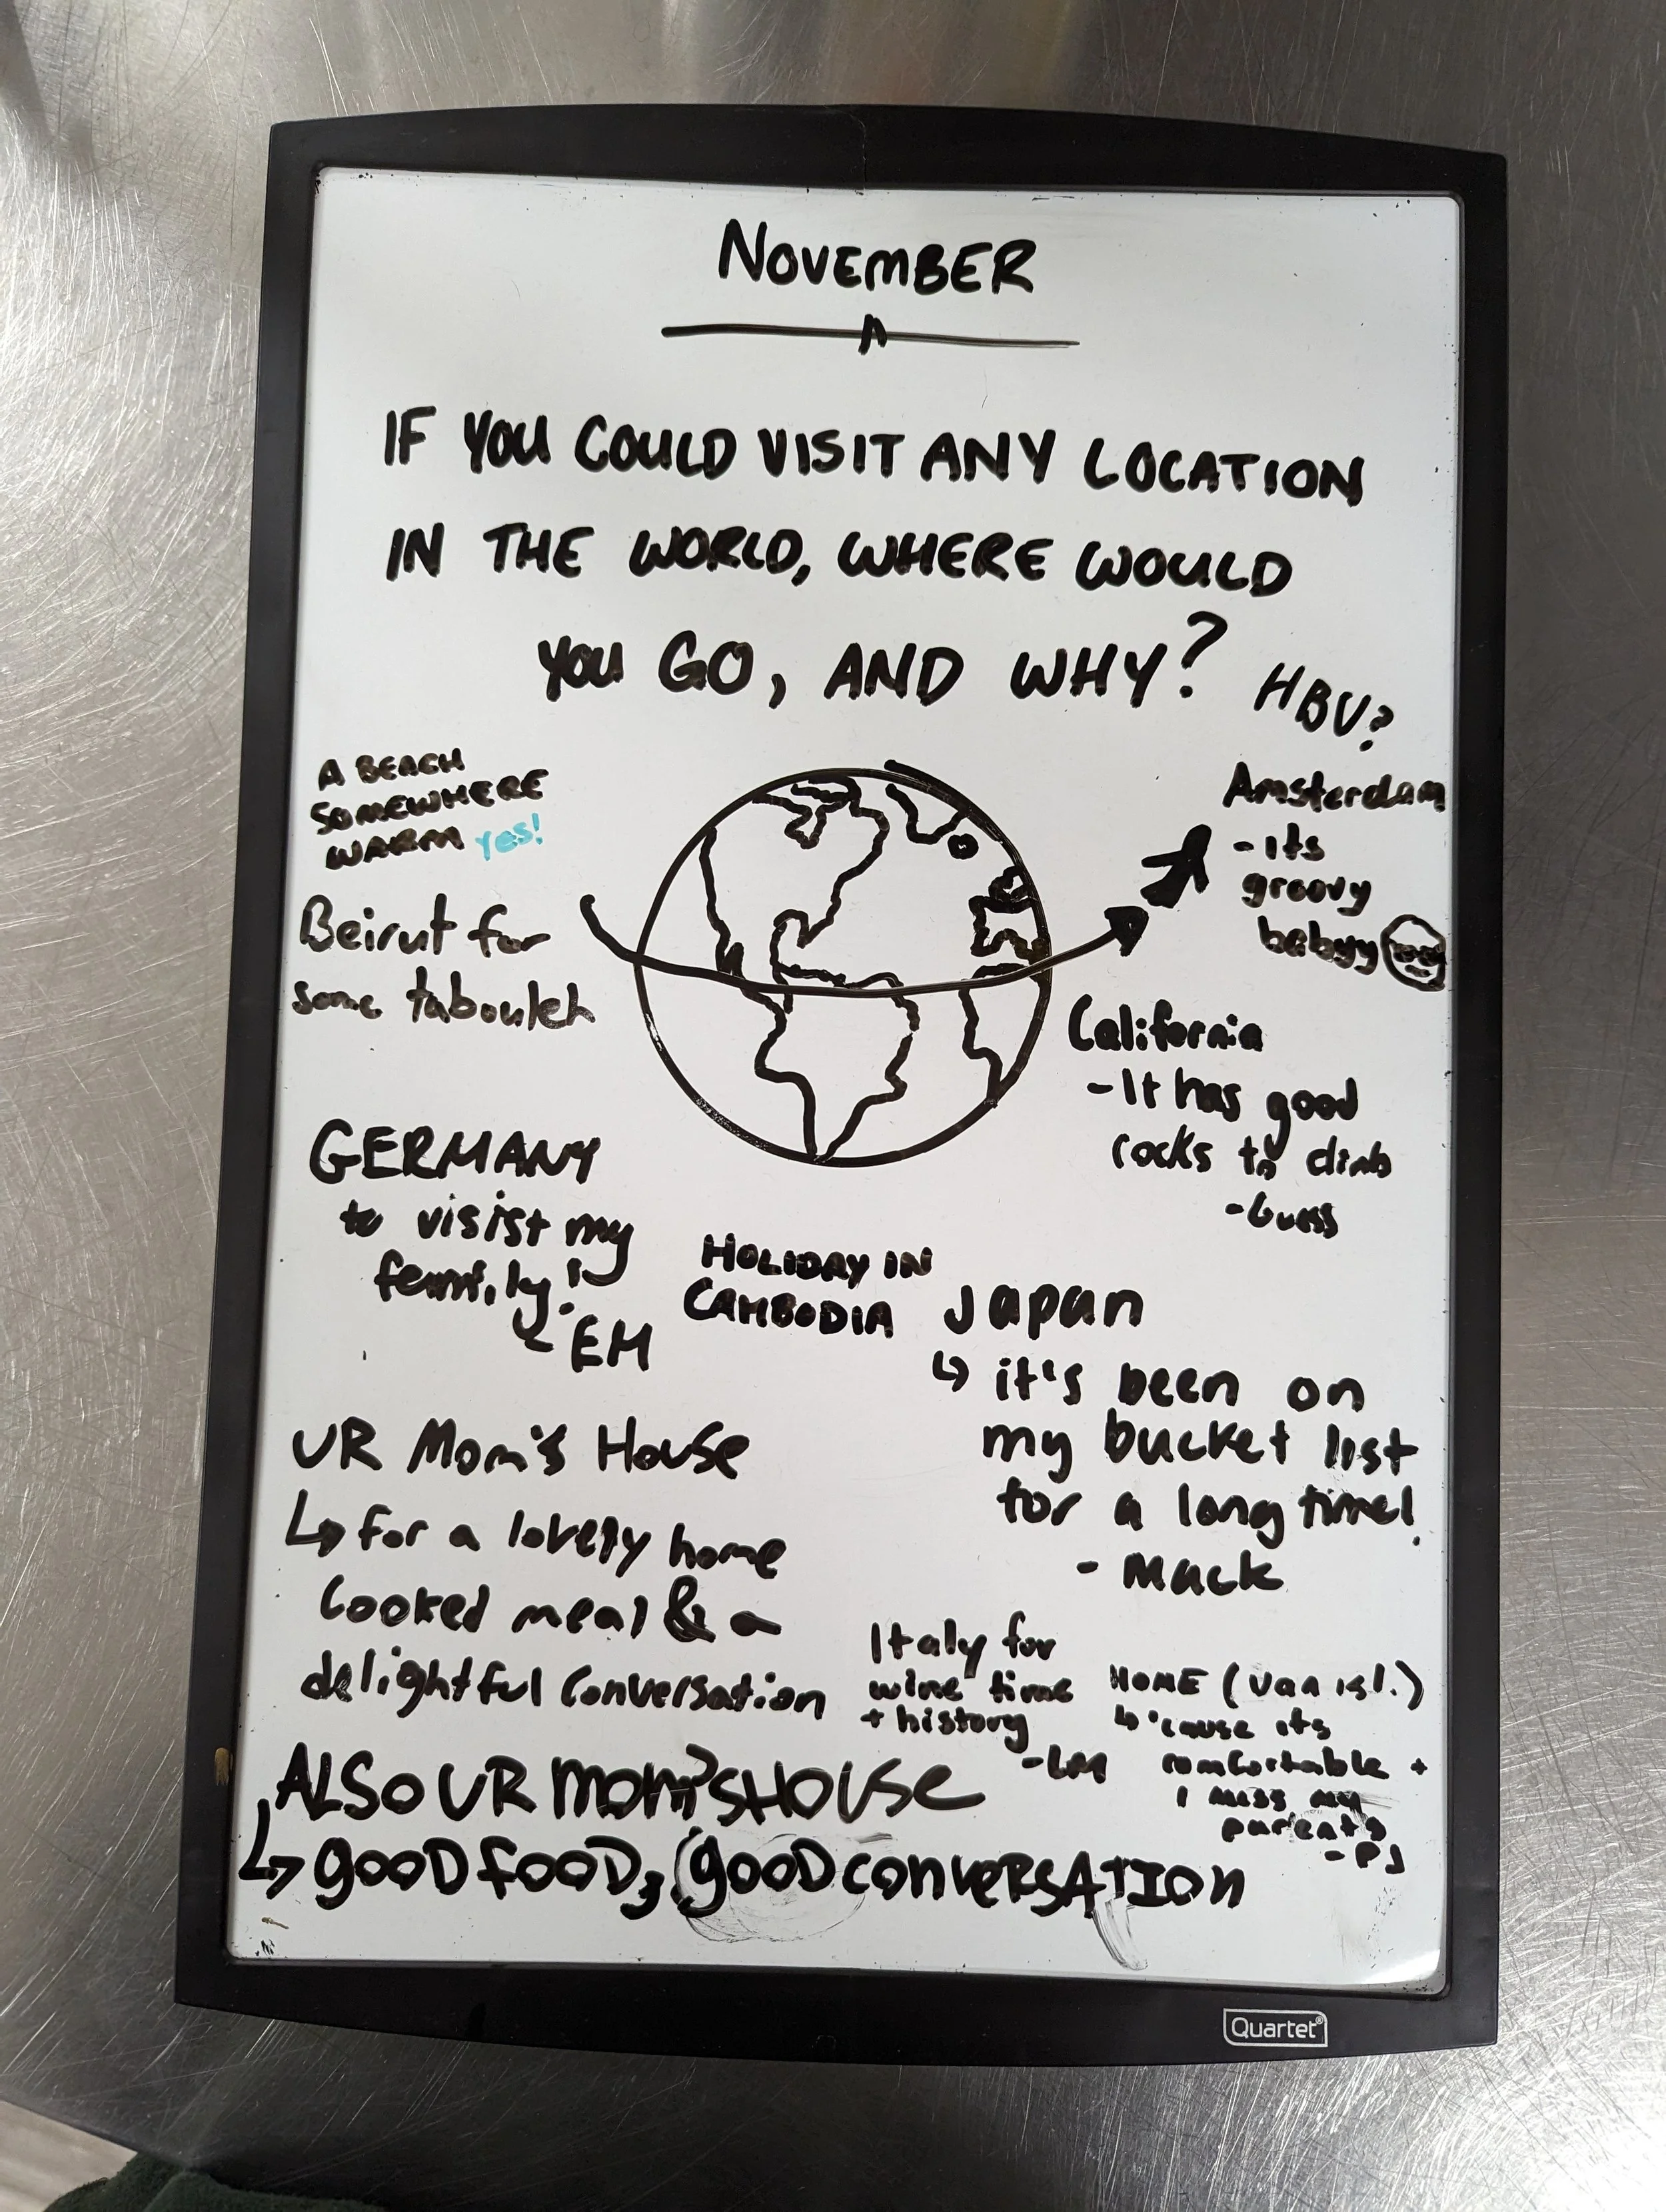 NOVEMBER
IF YOU COULD VISIT ANY LOCATION
IN THE WORLD, WHERE WOULD
YOU GO, AND WHY?
HBU?
A BEACH
SOMEWHERE
WARM yes!
Beirut for
some tabouleh
Amsterdam
- its
groovy
babyy
California
- It has good
rocks to climb
GERMANY
to visist my
family!
- EM
HOLIDAY IN
CAMBODIA
Japan
↳ it's been on
my bucket list
for a long time!
- Mack
UR Mom's House
↳ for a lovely home
cooked meal & a
delightful conversation
Italy for
wine time
+ history
- LM
HOME (Van isl.)
↳ 'cause its
comfortable +
I miss my
parents
- PJ
ALSO UR mom'sHOUSE
↳ gooD fooD, gooD conveRsATIon
Quartet®